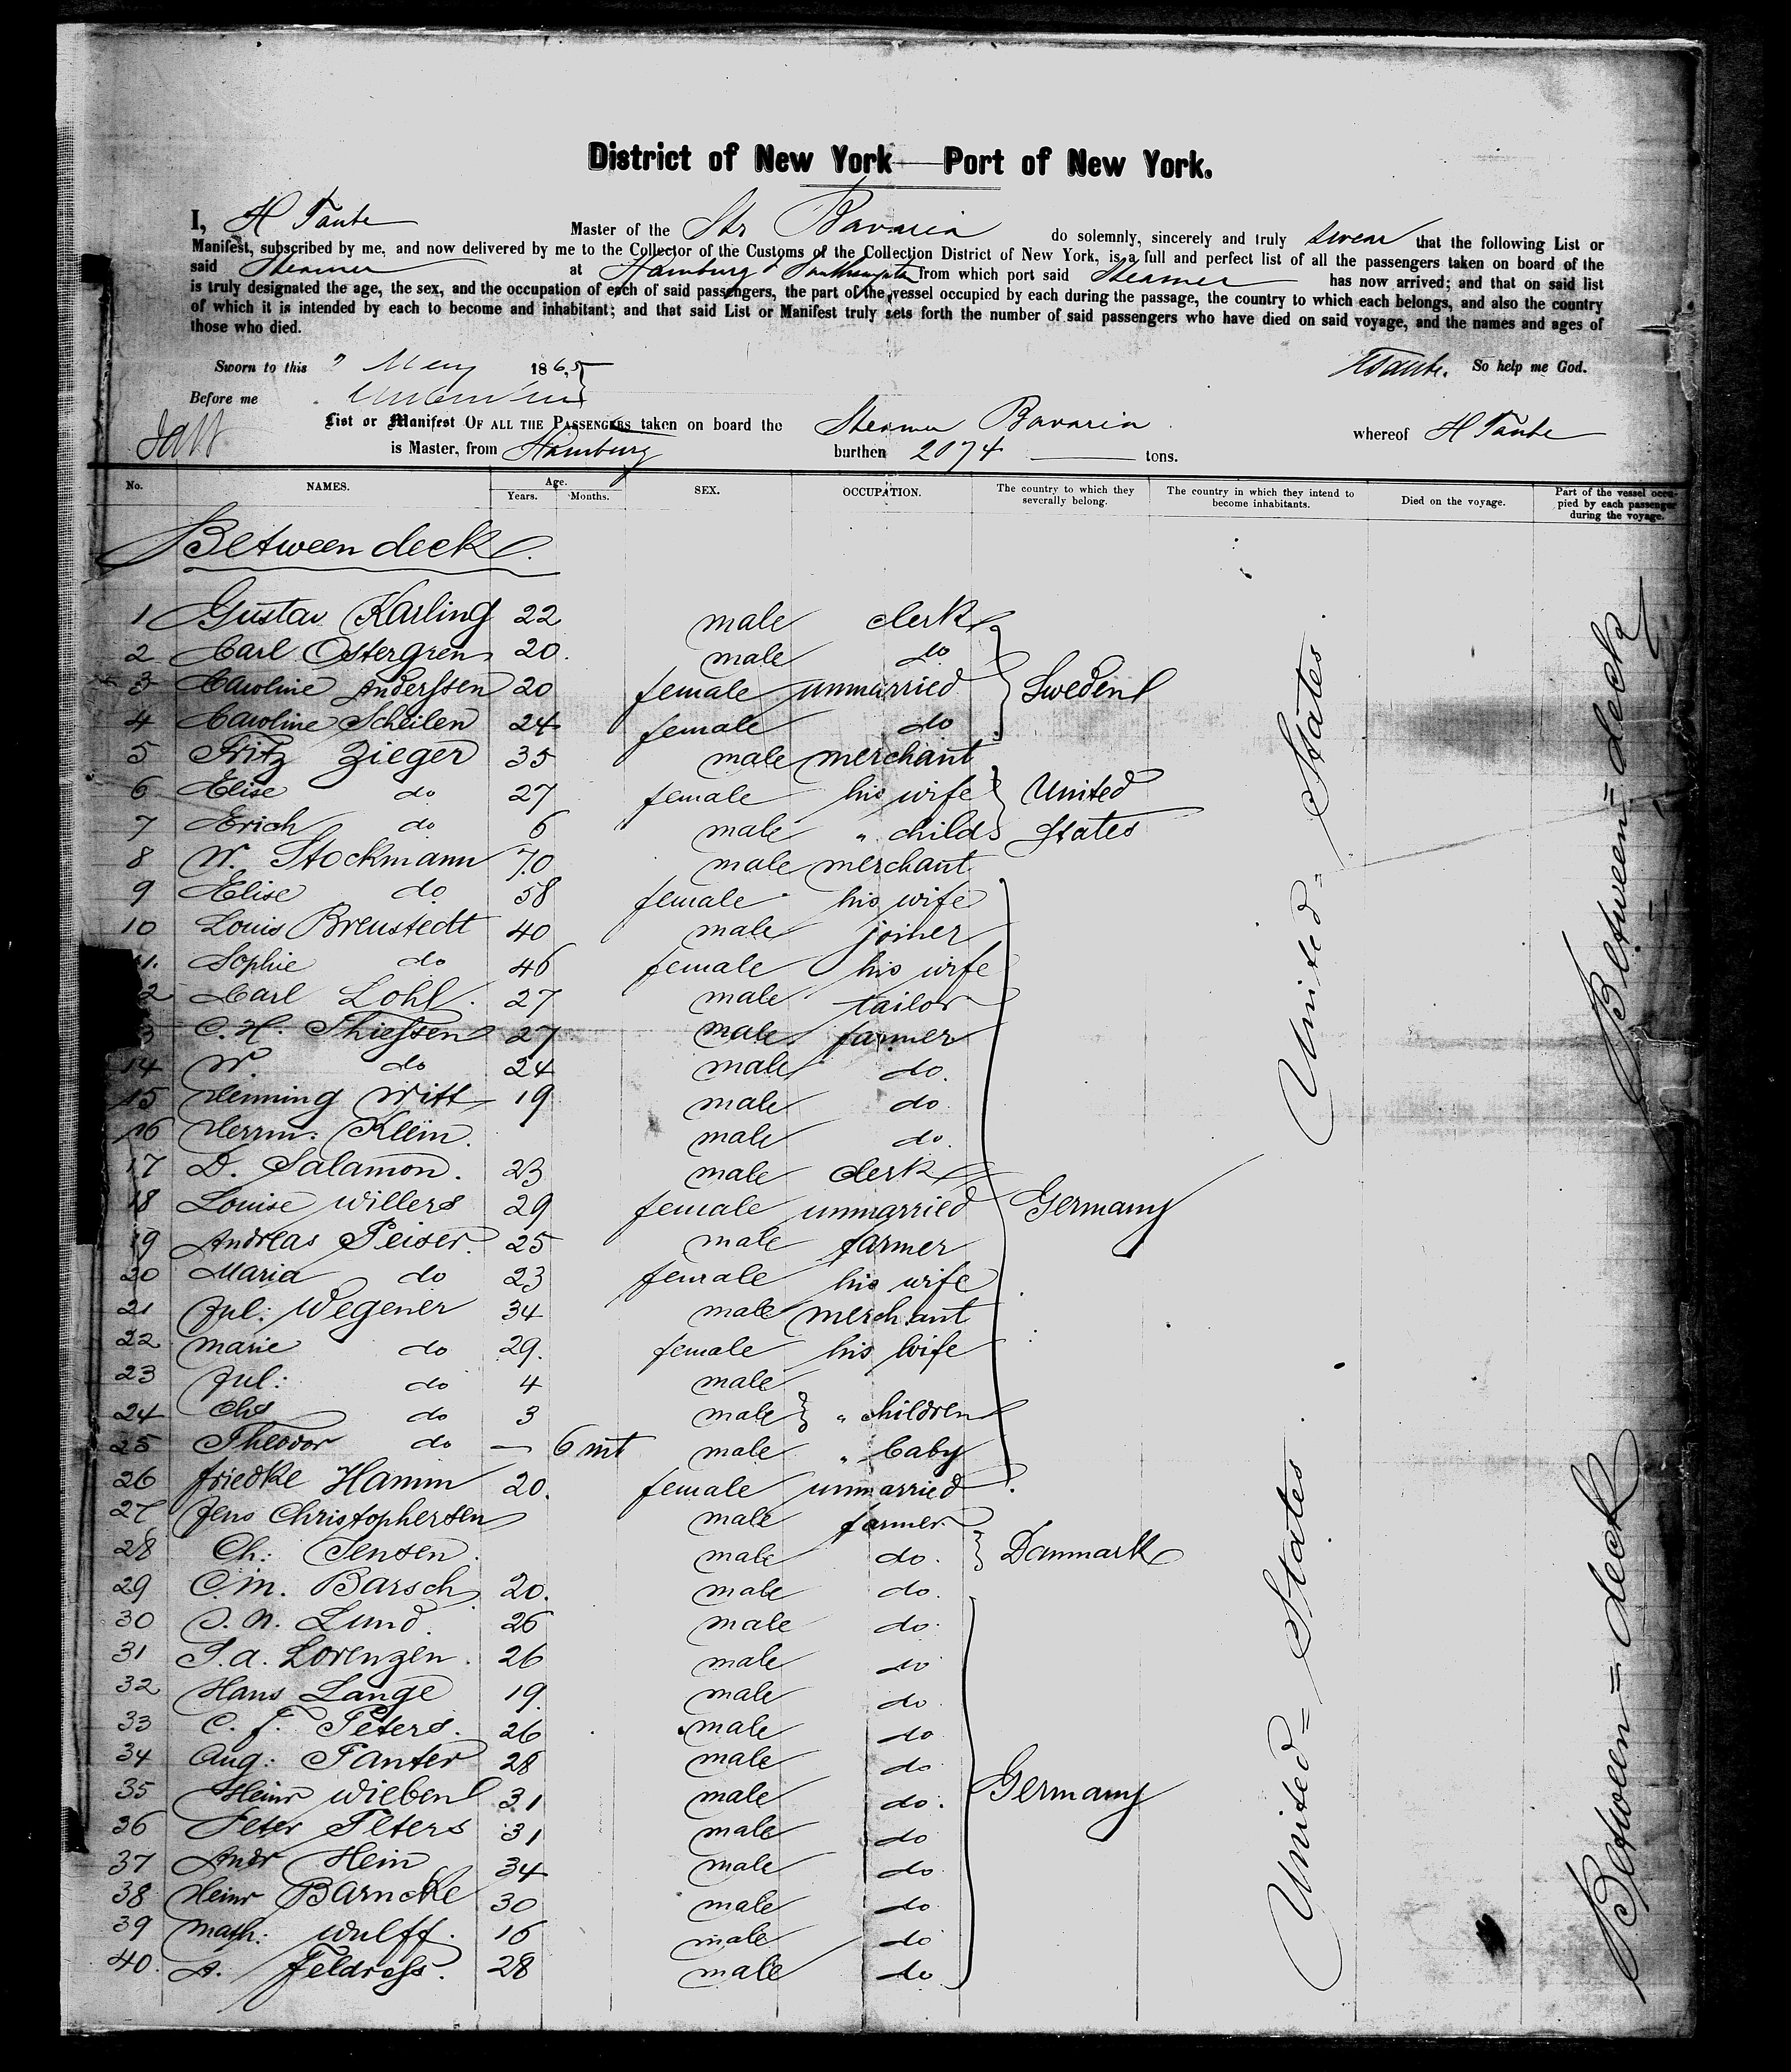 District of New York — Port of New York.
I, H Taube Master of the Str Bavaria do solemnly, sincerely and truly swear that the following List or
Manifest, subscribed by me, and now delivered by me to the Collector of the Customs of the Collection District of New York, is a full and perfect list of all the passengers taken on board of the
said Steamer at Hamburg & Southampton from which port said Steamer has now arrived; and that on said list
is truly designated the age, the sex, and the occupation of each of said passengers, the part of the vessel occupied by each during the passage, the country to which each belongs, and also the country
of which it is intended by each to become and inhabitant; and that said List or Manifest truly sets forth the number of said passengers who have died on said voyage, and the names and ages of
those who died.
Sworn to this May 1865 HTaube. So help me God.
Before me
List or Manifest OF ALL THE PASSENGERS taken on board the Steamer Bavaria whereof H Taube
is Master, from Hamburg burthen 2074 tons.
No. NAMES. Age. Years. Months. SEX. OCCUPATION. The country to which they severally belong. The country in which they intend to become inhabitants. Died on the voyage. Part of the vessel occupied by each passenger during the voyage.
Between deck.
1 Gustav Karling 22 male clerk
2 Carl Ostergren 20. male do
3 Caroline Anderssen 20 female unmarried Sweden
4 Caroline Scheilen 24 female do
5 Fritz Zieger 35 male merchant
6 Elise do 27 female his wife United
7 Erich do 6 male " child States
8 W. Stockmann 70 male merchant
9 Elise do 58 female his wife
10 Louis Breustedt 40 male joiner
11. Sophie do 46 female his wife
2 Carl Lohl. 27 male tailor
3 C. H. Thiessen 27 male farmer
14 W. do 24 male do.
15 Henning Witt 19 male do
16 Herrm. Klein. male do.
17 D. Salamon. 23 male clerk
18 Louise Willers 29 female unmarried Germany
19 Andreas Peiser. 25 male farmer
20 Maria do 23 female his wife
21 Jul: Wegener 34 male merchant
22 Marie do 29. female his wife
23 Jul: do 4 male
24 Chs do 3 male " children
25 Theodor do — 6 mt male " baby
26 Friedke Hamm 20. female unmarried
27 Jens Christophersen male farmer
28 Ch: Jensen. male do. Danmark
29 C. M. Barsch 20. male do.
30 N. Lund. 26 male do.
31 P. A. Lorenzen. 26 male do
32 Hans Lange 19. male do.
33 C. J. Peters. 26 male do
34 Aug: Panter 28 male do.
35 Heinr Wieben 31 male do. Germany
36 Peter Peters 31 male do
37 Andr Hein 34 male do.
38 Heinr Barncke 30 male do
39 Math: Wulff. 16 male do
40. A. Feldross. 28 male do.
United= States.
United= States.
Between=deck
Between=deck